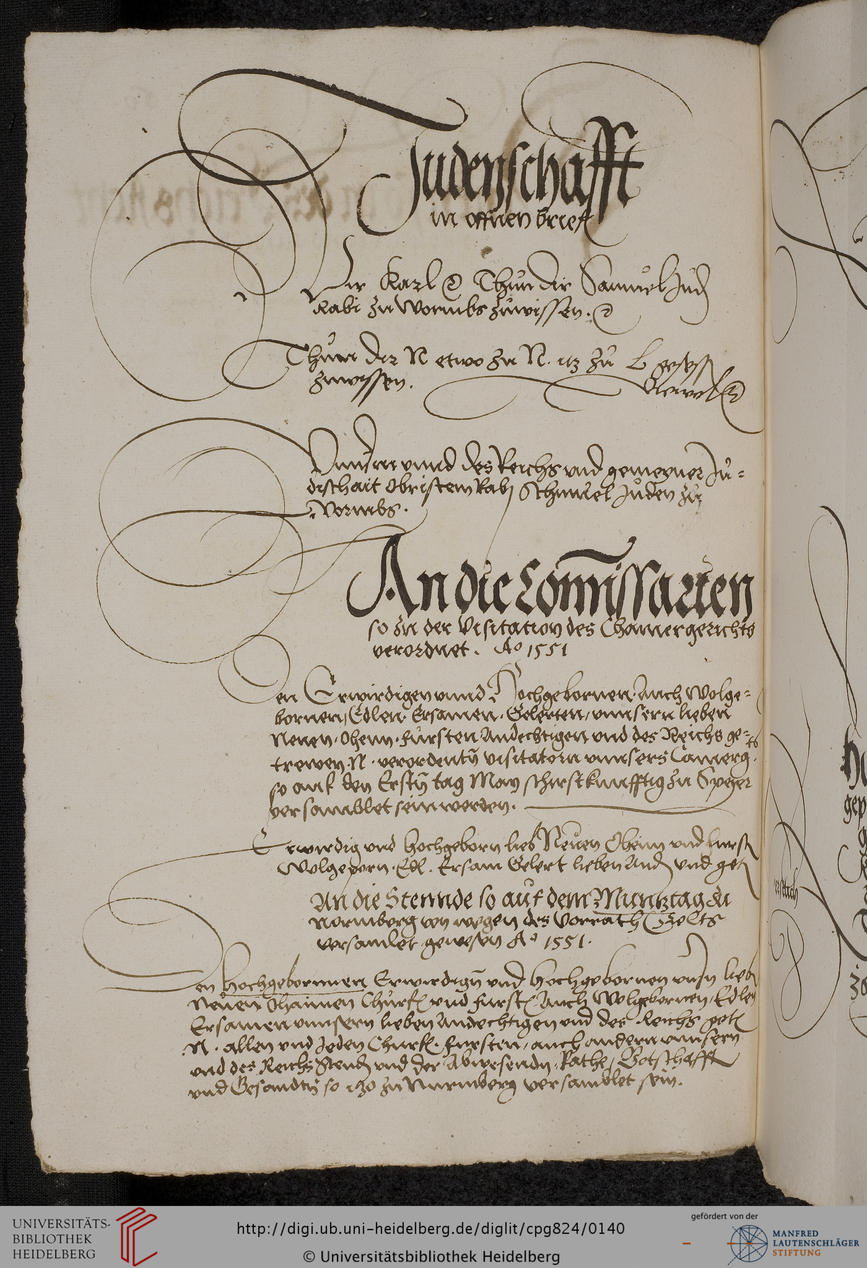 Judenschafft
in offnen brief
Wir Karl Thun dir Samuel Jud
Rabi zu Wormbs zuwissen.
Thun dir N etwo zu N. itz zu
zuwissen.
Unnserm unnd des Reichs und gemeyner Ju-
dischait Obristem Rabj Schmuel Juden zu
Wormbs.
An die Commissarien
so zu der Visitation des Chamergerichts
verordnet. Ao 1551
Den Erwirdigen unnd Hochgebornen. Auch Wolge-
bornen, Edlen. Ersamen. Gelerten, unnsern lieben
Neven. Ohem. fursten Andechtigen und des Reichs ge-
trewen N. verordenten visitatorn unnsers Camerg.
so auf den Ersten tag May schirstkunfftig zu Speyer
versamblet sein werden.
Erwirdig und hochgeborn lieb Neven Ohaim und furst
Wolgeporn. Edl. Ersam Gelert lieben And und get
An die Stennde so auf dem Muntztag zu
Nornberg von wegen des Vorrath Gelts
versamlet gewesen Ao 1551.
Den Hochgebornnen Erwirdign und Hochgebornen unsn lieb
Neven Ohaimen Churf und furst Auch Wolgebornen, Edlen
Ersamen unnsern lieben Andechtigen und des Reichs get
N. allen und Jeden Churf. fursten, auch andern unnsern
und des Reichs Stend und der Abwesendn, Rathe, Botschafft
und Gesandtn so itzo zu Nurmberg versamblet sein.
UNIVERSITÄTS-
BIBLIOTHEK
HEIDELBERG
http://digi.ub.uni-heidelberg.de/diglit/cpg824/0140
© Universitätsbibliothek Heidelberg
gefördert von der
MANFRED
LAUTENSCHLÄGER
STIFTUNG